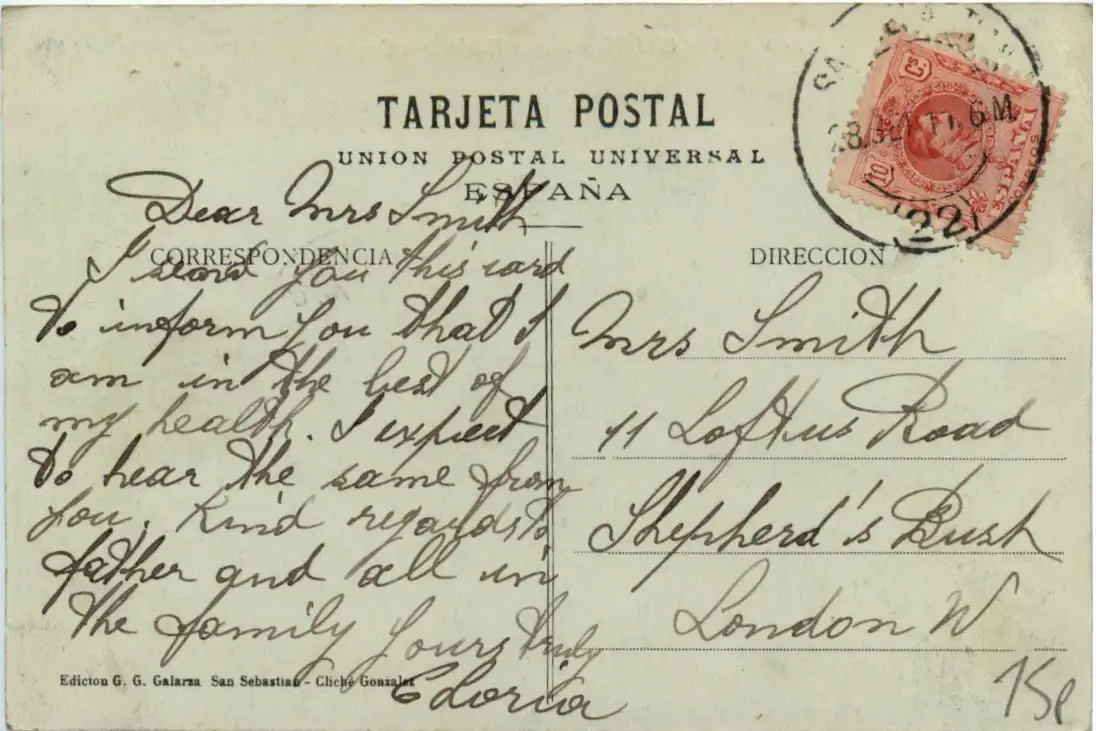 TARJETA POSTAL
UNION POSTAL UNIVERSAL
ESPAÑA
CORRESPONDENCIA
Dear Mrs Smith
I send you this card
to inform you that I
am in the best of
my health. I expect
to hear the same from
you. Kind regards to
father and all in
the family Yours truly
Gloria
Edicion G. G. Galarza San Sebastian - Cliché Gonzalez
DIRECCION
Mrs Smith
11 Loftus Road
Shepherd's Bush
London W
15p
10
Cs
ESPAÑA
CORREOS
28 SET 11 6M
(22)